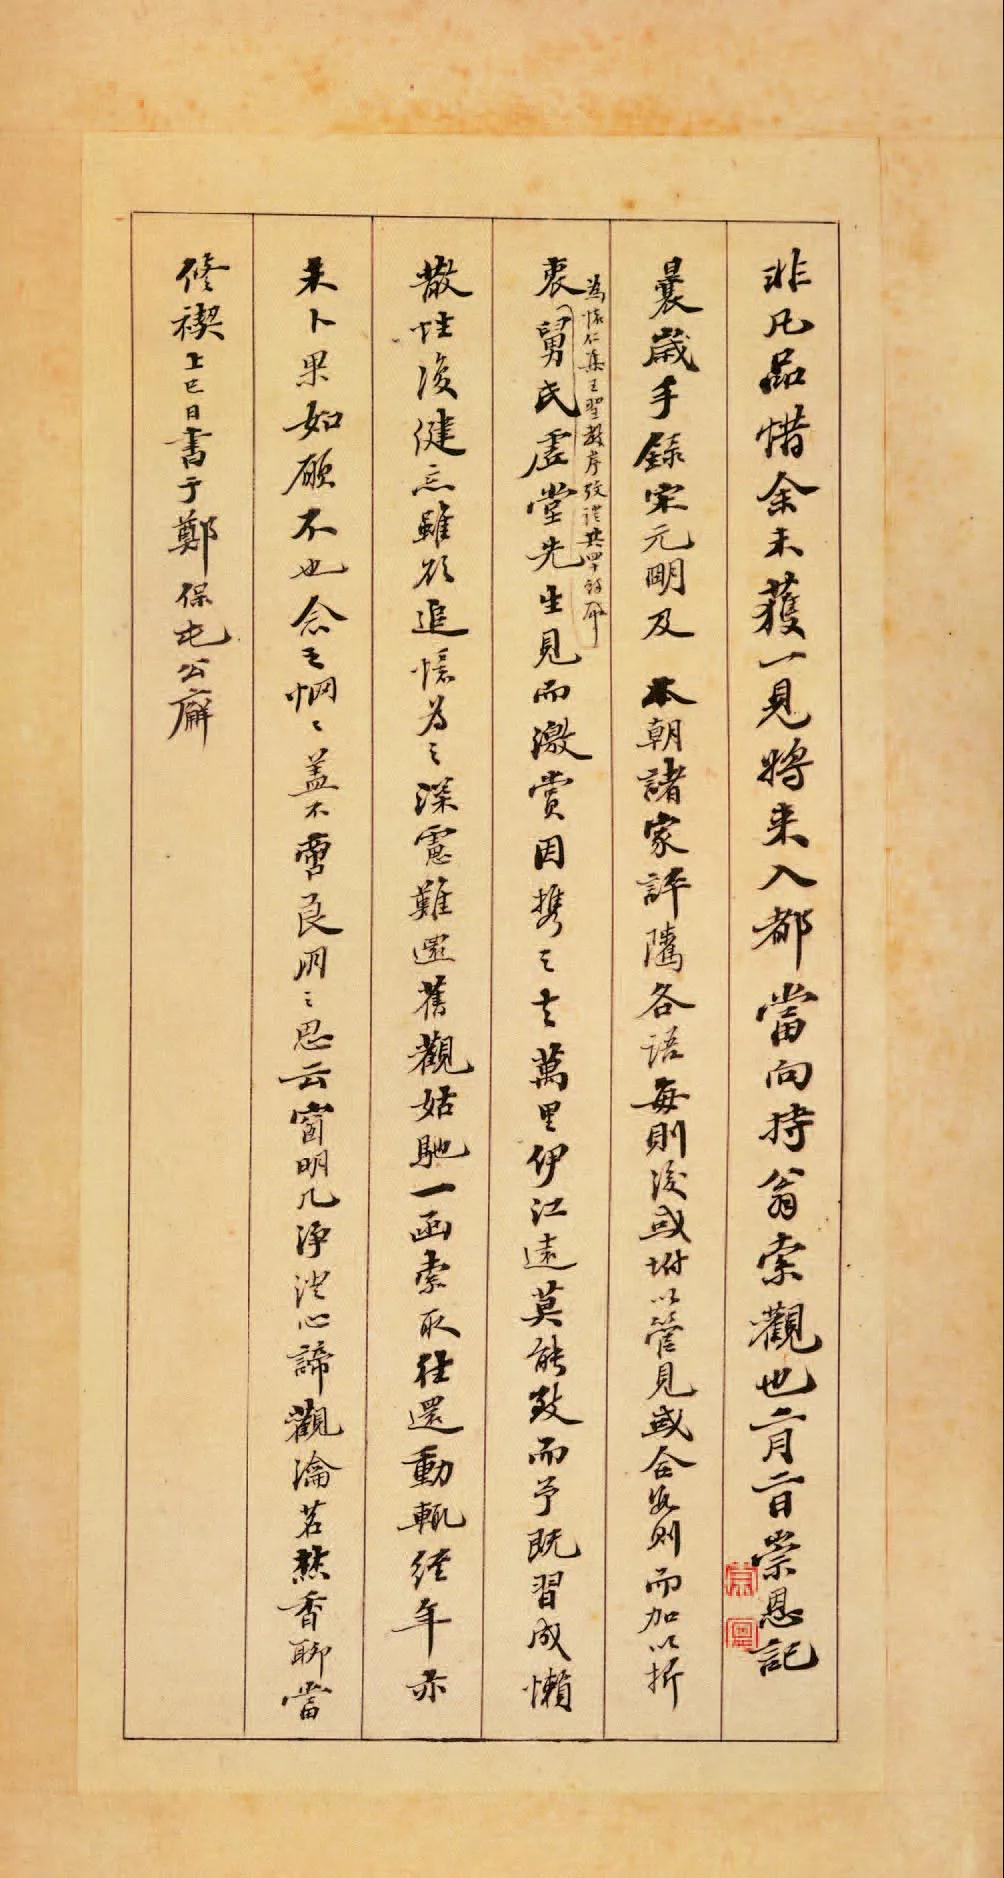 非凡品惜余未獲一見將来入都當向持翁索觀也二月二日崇恩記
曩歲手錄宋元明及本朝諸家評隲各語每則後或坿以管見或合數則而加以折
衷
為懷仁集王聖教序攷證共四餘冊
舅氏虛堂先生見而激賞因携之去萬里伊江遠莫能致而予既習成懶
散性復健忘雖欲追憶為之深慮難還舊觀姑馳一函索取往還動輒經年亦
未卜果如願不也念之惘〻蓋不啻良朋之思云窗明几淨澄心諦觀瀹茗爇香聊當
修禊上巳日書于鄭保屯公廨